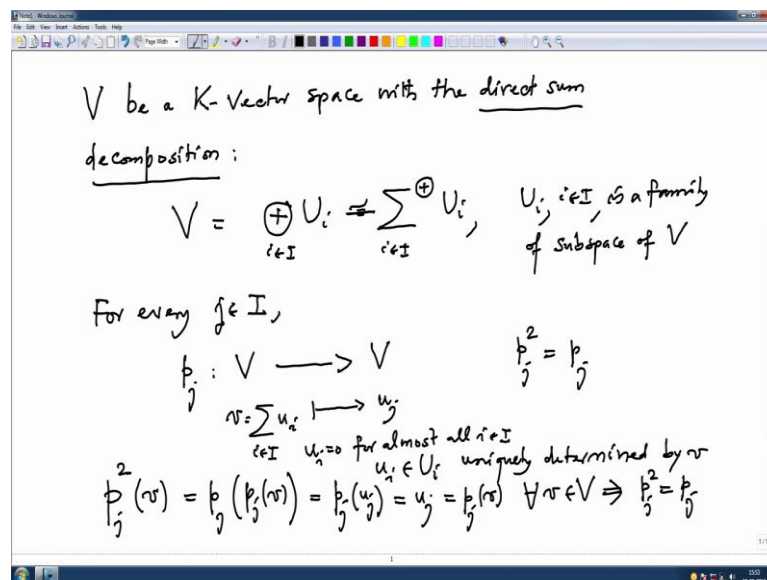 Note1 - Windows Journal
File Edit View Insert Actions Tools Help
Page Width
V be a K-Vector space with the direct sum
decomposition :
V = ⊕_{i∈I} U_i = ∑^⊕_{i∈I} U_i, U_i, i∈I, is a family
of subspace of V
For every j∈I,
p_j : V ⟶ V p_j^2 = p_j
v = ∑_{i∈I} u_i ⟼ u_j
u_i=0 for almost all i∈I
u_i ∈ U_i uniquely determined by v
p_j^2(v) = p_j(p_j(v)) = p_j(u_j) = u_j = p_j(v) ∀v∈V ⇒ p_j^2 = p_j
1
1/1
15:53